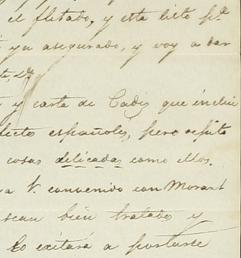 el fletado, y esta listo pa
ya asegurado, y voy a dar
y carta de Cadiz que inclui
españoles, pero repito
cosas delicadas como ellos.
V. convenido con Morant
sean bien tratados y
lo exitará a portarse